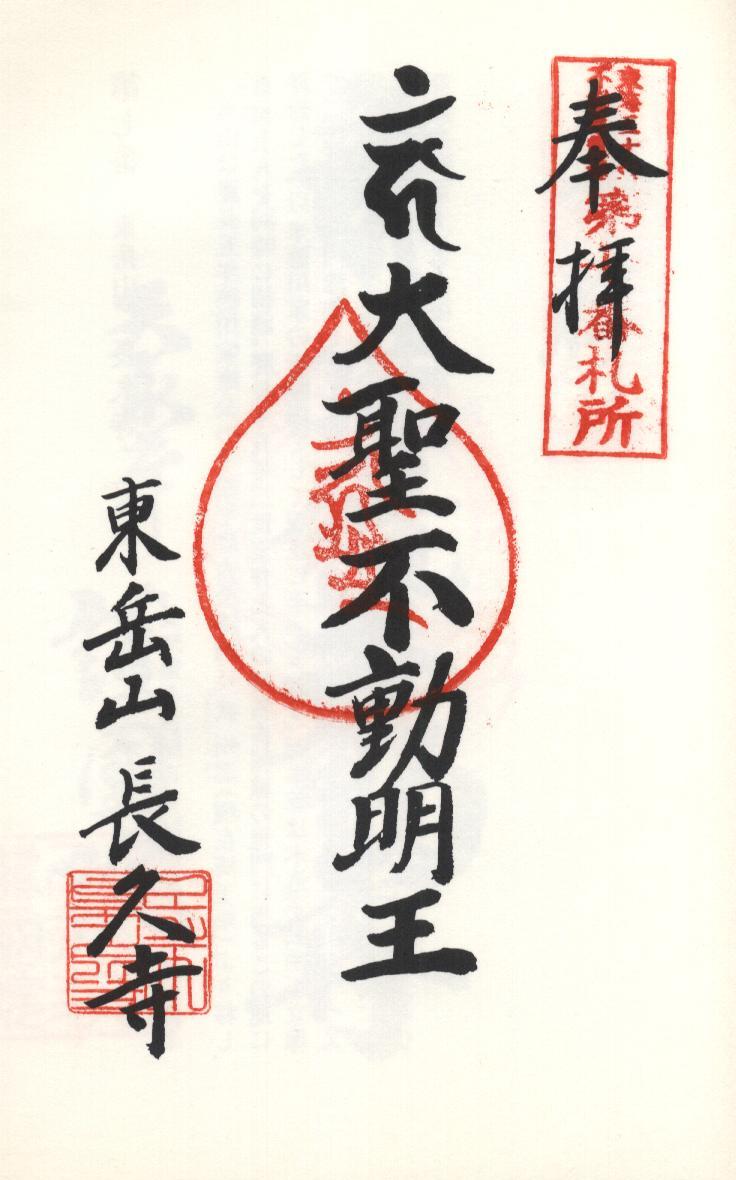 奉拝
札所
大聖不動明王
東岳山 長久寺